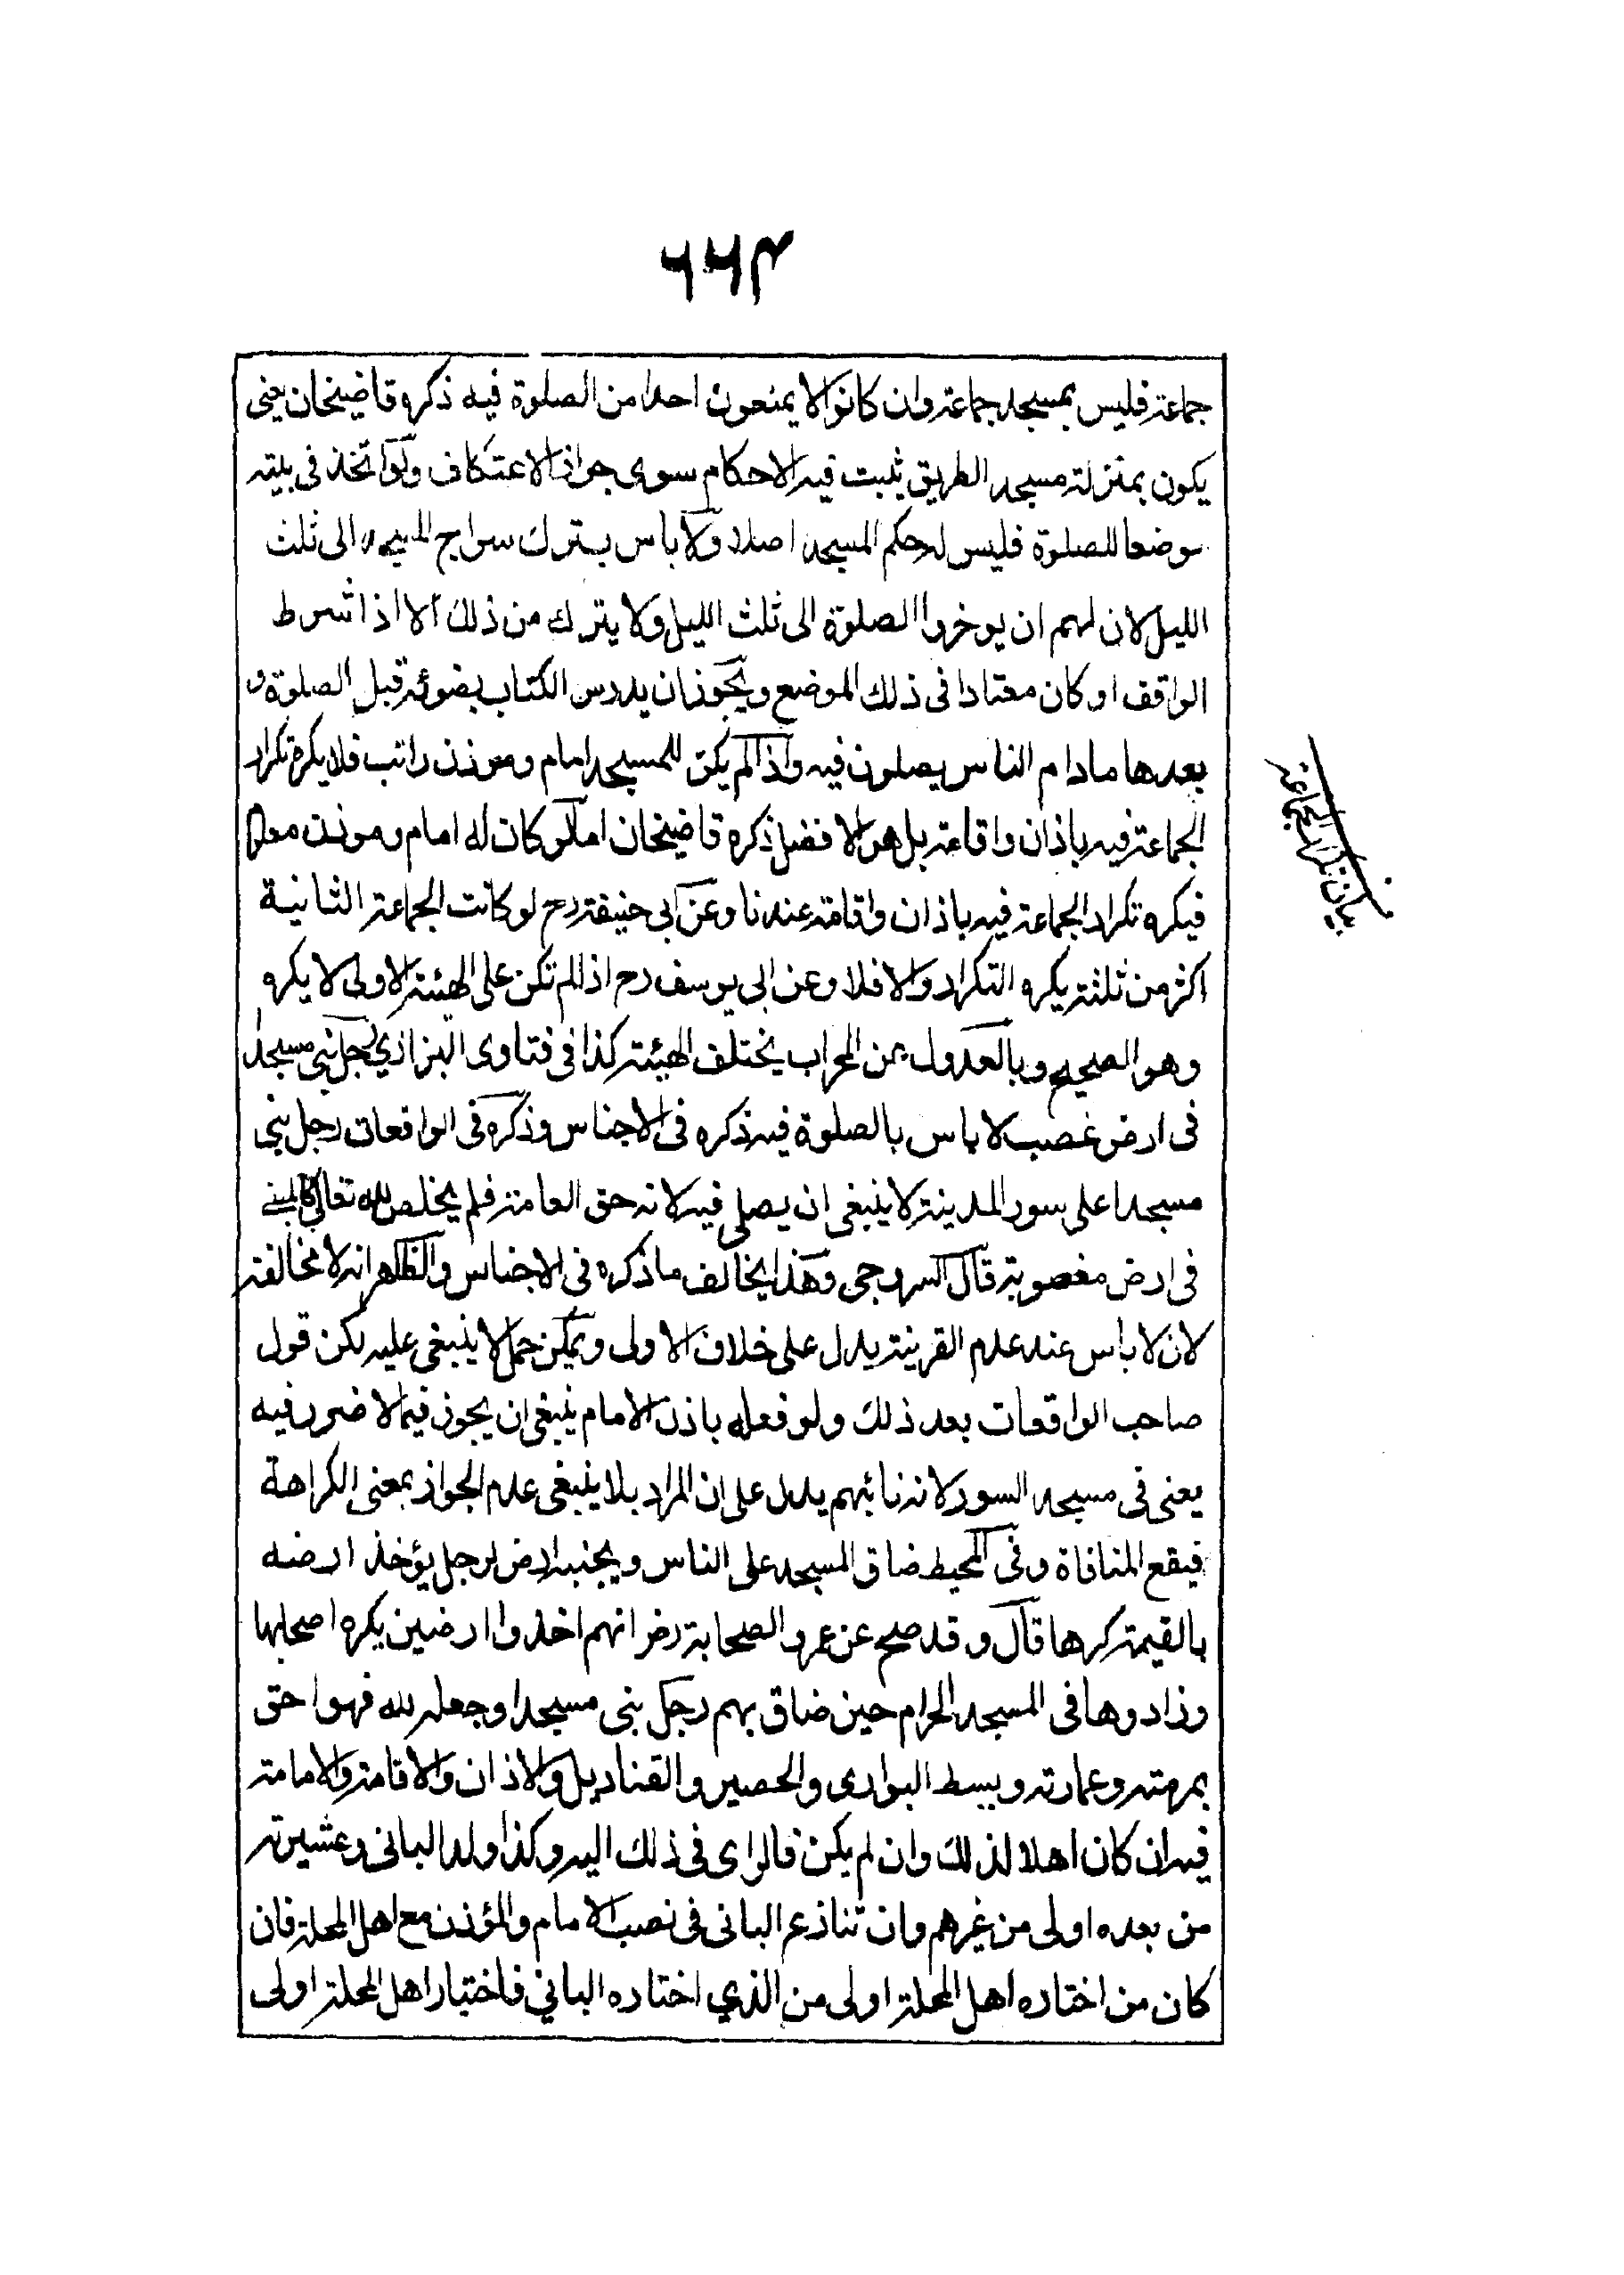 ۶۶۴
جماعة فليس بمسجد جماعة وان كانوا لا يمنعون احدا من الصلوة فيه ذكره قاضيخان يعنى
يكون بمنزلة مسجد الطريق يثبت فيه الاحكام سوى جواز الاعتكاف ولو اتخذ فى بيته
موضعا للصلوة فليس له حكم المسجد اصلا ولا باس بترك سراج المسجد الى ثلث
الليل لان لهم ان يوخروا الصلوة الى ثلث الليل ولا يترك من ذلك الا اذا شرط
الواقف او كان معتادا فى ذلك الموضع ويجوز ان يدرس الكتاب بضوئه قبل الصلوة و
بعدها ما دام الناس يصلون فيه واذا لم يكن للمسجد امام وموذن راتب فلا يكره تكرار
الجماعة فيه باذان واقامة بل هو الافضل ذكره قاضيخان اما لو كان له امام وموذن معلوم
فيكره تكرار الجماعة فيه باذان واقامة عندنا وعن ابى حنيفة رح لو كانت الجماعة الثانية
اكثر من ثلثة يكره التكرار والا فلا وعن ابى يوسف رح اذا لم تكن على الهيئة الاولى لا يكره
وهو الصحيح وبالعدول عن المحراب يختلف الهيئة كذا فى فتاوى البزازي رجل بنى مسجدا
فى ارض غصب لا باس بالصلوة فيه ذكره فى الاجناس وذكره فى الواقعات رجل بنى
مسجدا على سور المدينة لا ينبغى ان يصلى فيه لانه حق العامة فلم يخلص لله تعالى كالمبنى
فى ارض مغصوبة قال السروجى وهذا يخالف ما ذكره فى الاجناس والظاهر انه لا مخالفة
لان لا باس عند عدم القرينة يدل على خلاف الاولى ويمكن حمل لا ينبغى عليه لكن قول
صاحب الواقعات بعد ذلك ولو فعله باذن الامام ينبغى ان يجوز فيما لا ضرر فيه
يعنى فى مسجد السور لانه نائبهم يدل على ان المراد بلا ينبغى عدم الجواز بمعنى الكراهة
فيقع المنافاة وفى المحيط ضاق المسجد على الناس وبجنبه ارض لرجل يؤخذ ارضه
بالقيمة كرها قال وقد صح عن عمر والصحابة رضـ انهم اخذوا ارضين بكره اصحابها
وزادوها فى المسجد الحرام حين ضاق بهم رجل بنى مسجدا وجعله لله فهو احق
بمرمته وعمارته وبسط البوارى والحصير والقناديل والاذان والاقامة والامامة
فيه ان كان اهلا لذلك وان لم يكن فالراى فى ذلك اليه وكذا ولد البانى وعشيرته
من بعده اولى من غيرهم وان تنازع البانى فى نصب الامام والمؤذن مع اهل المحلة فان
كان من اختاره اهل المحلة اولى من الذي اختاره الباني فاختيار اهل المحلة اولى
بيان تكرار الجماعة